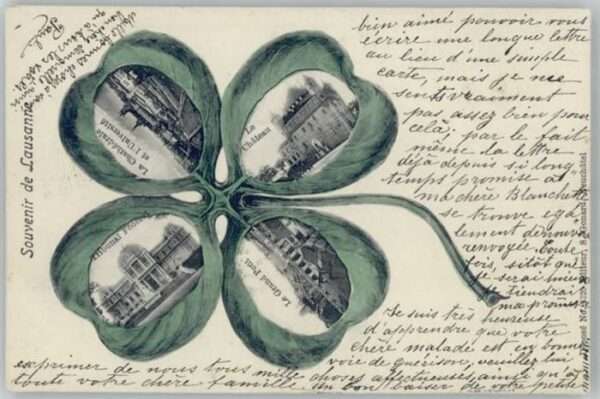 bien aimé pouvoir vous
écrire une longue lettre
au lieu d'une simple
carte, mais je me
sens vraiment
pas assez bien pour
cela; par le fait
même la lettre
déjà depuis si long
temps promise à
ma chère Blanchette
se trouve éga
lement de nouveau
renvoyée, toute
fois, sitôt que
je serai mieux
je tiendrai
ma promesse
Je suis très heureuse
d'apprendre que votre
chère malade est en bonne
voie de guérison, veuillez lui
exprimer de nous tous mille choses affectueuses, ainsi qu'à
toute votre chère famille. Un bon baiser de votre petite
Paule
Souvenir de Lausanne
La Cathédrale
et l'Université
Le
Château
Tribunal Fédéral
Le Grand Pont